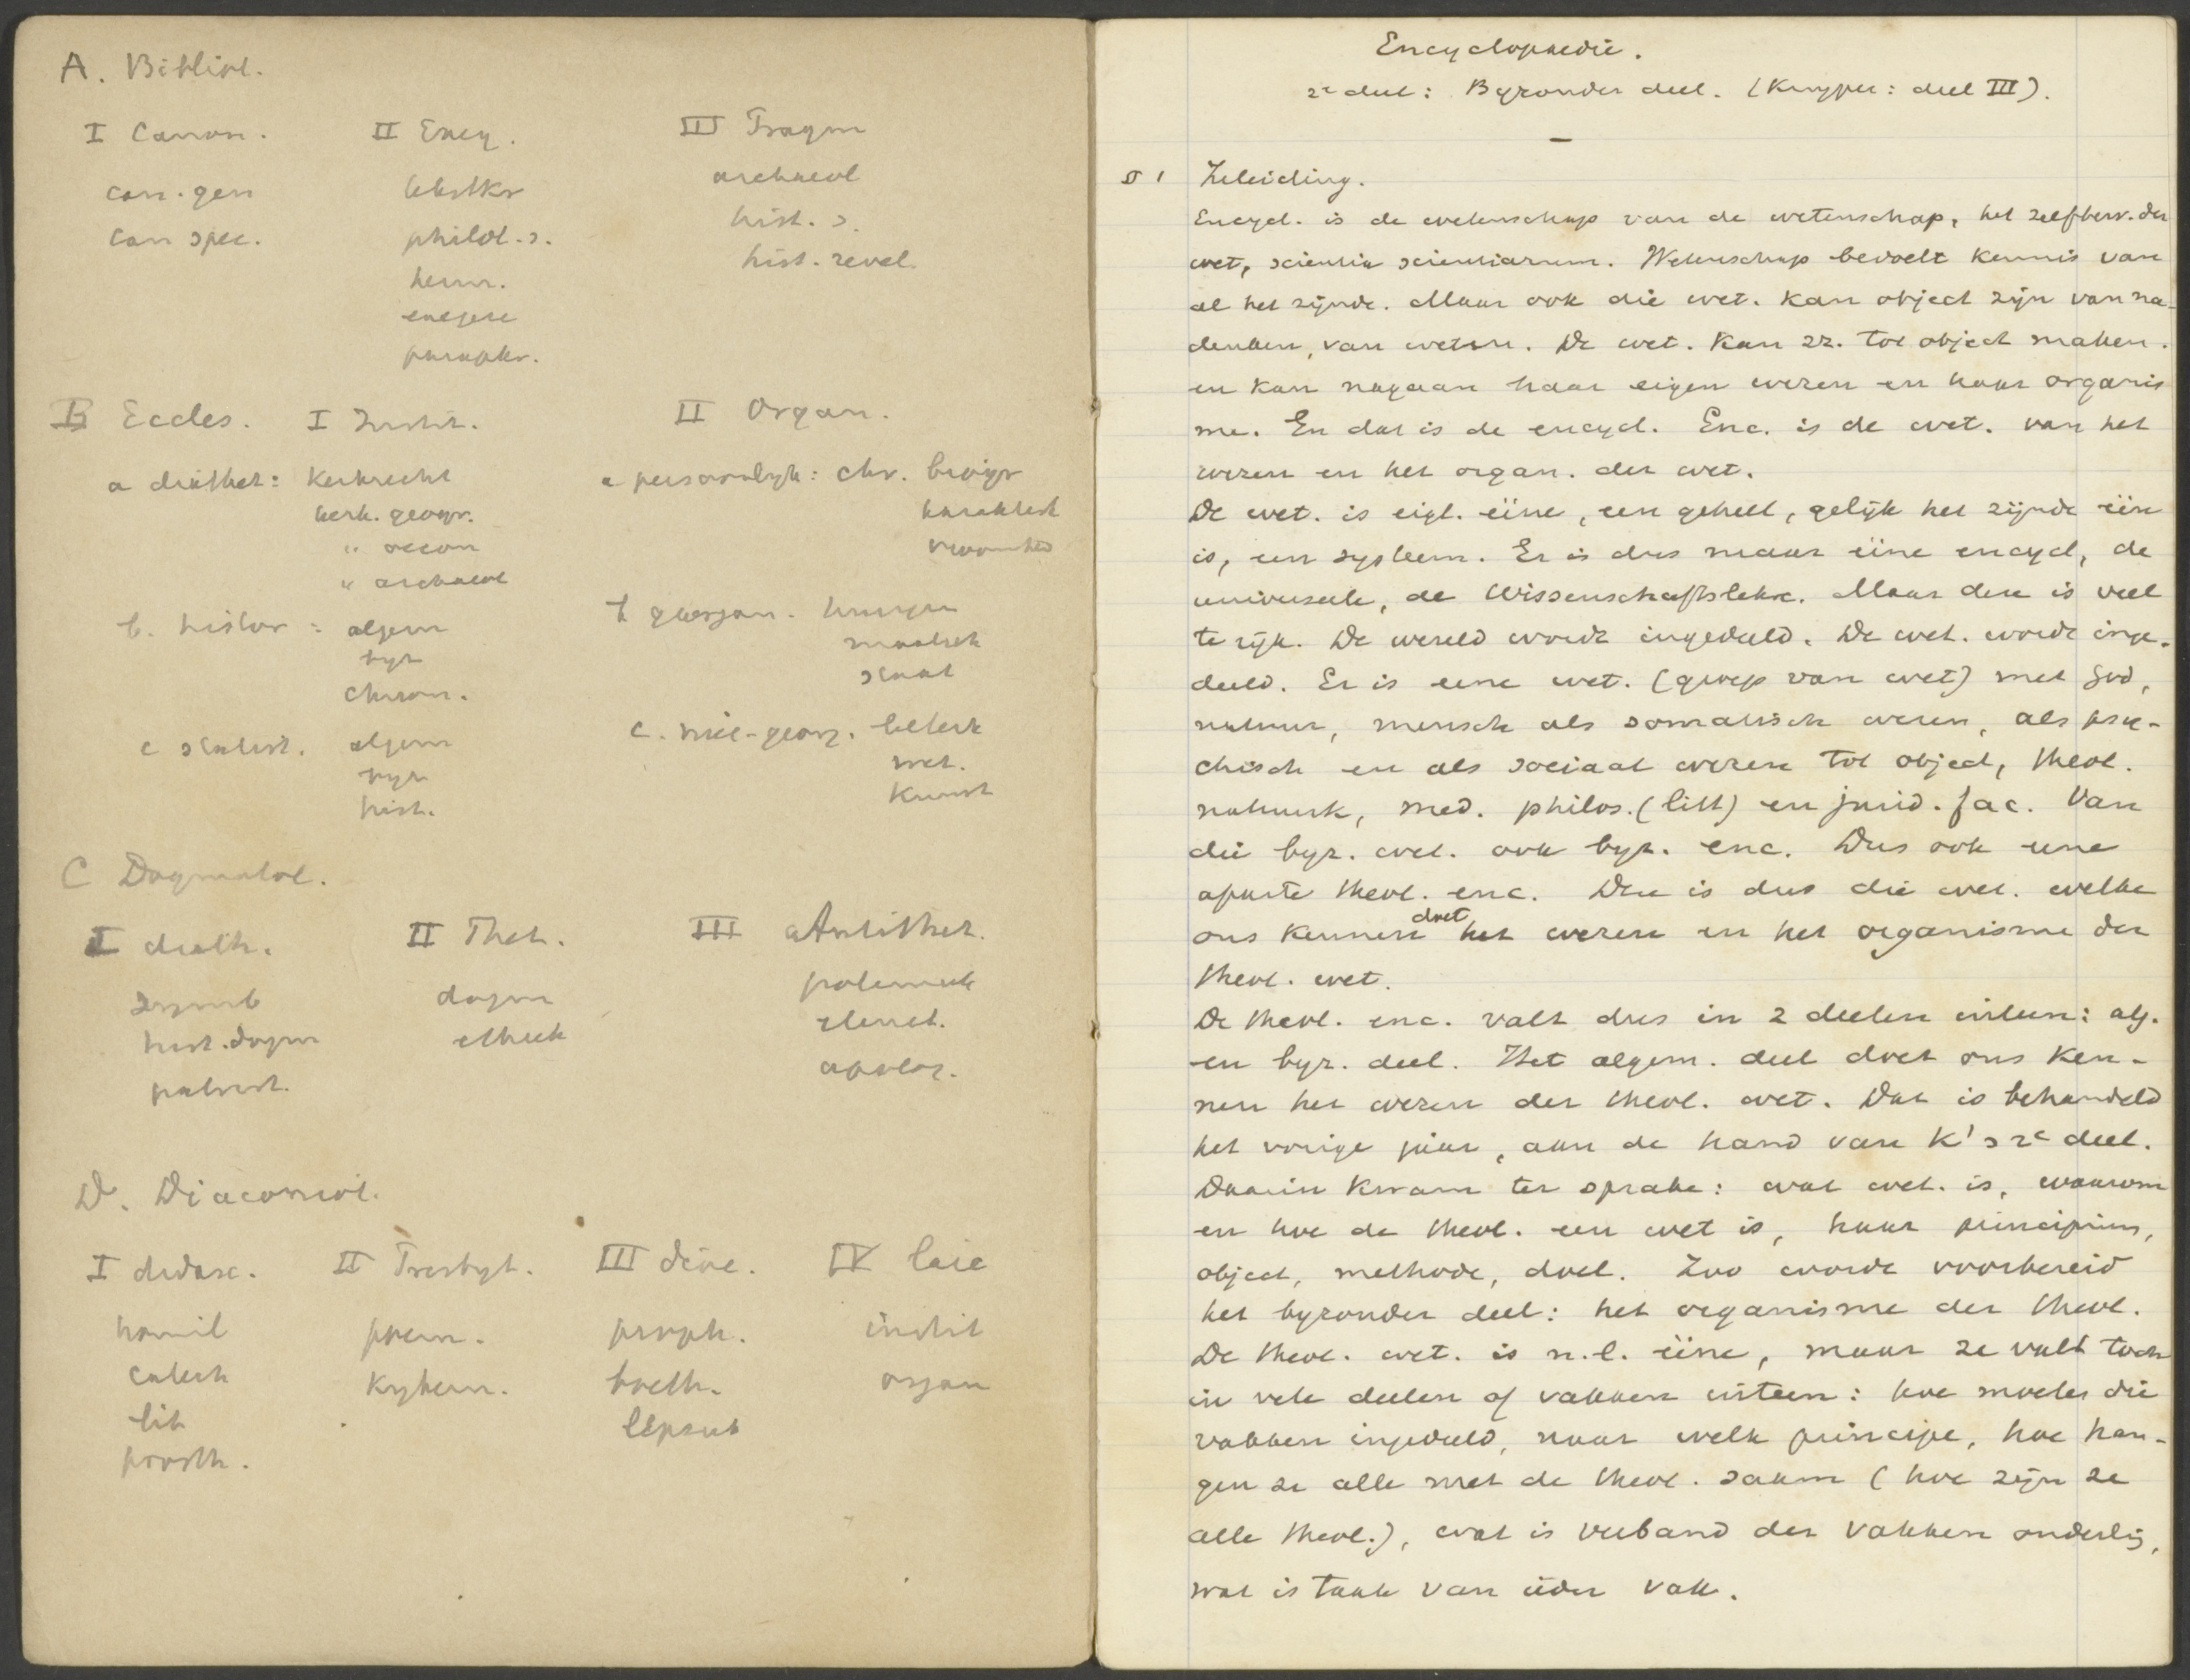 A. Bibliol.
I Canon. II Exeg. III Pragm
can. gen tekstkr archaeol
can spec. philol. s. hist. s.
herm. hist. revel.
exegese
paraphr.
B Eccles. I Instit. II Organ.
a diathet: Kerkrecht a persoonlyk: chr. biogr
kerk. geogr. karakterk
" oecon vroomheid
" archaeol
b. histor: algem b georgan. huisgez
byz maatsch
chron. staat
c statist. algem c. niet-georg. letterk
byz wet.
hist. Kunst
C Dogmatol.
I diath. II Thet. III Antithet.
symb dogm polemiek
hist. dogm ethiek elenct.
patrist. apolog.
D. Diaconiol.
I didasc. II Presbyt. III diac. IV laic
homil poem. proph. instit
catech Kybern. organ
lit
prosth.
Encyclopaedie.
2e deel: Byzonder deel. (Kuyper: deel III).
§ 1 Inleiding.
Encycl. is de wetenschap van de wetenschap, het zelfbew. der
wet, scientia scientiarum. Wetenschap bedoelt kennis van
al het zijnde. Maar ook die wet. kan object zijn van na-
denken, van weten. De wet. kan zz. tot object maken.
en kan nagaan haar eigen wezen en haar organis
me. En dat is de encycl. Enc. is de wet. van het
wezen en het organ. der wet.
De wet. is eigl. ééne, een geheel, gelijk het zijnde één
is, een systeem. Er is dus maar ééne encycl, de
universeele, de Wissenschaftslehre. Maar deze is veel
te rijk. De wereld wordt ingedeeld. De wet. wordt inge-
deeld. Er is eene wet. (groep van wet) met God,
natuur, mensch als somatisch wezen, als psy-
chisch en als sociaal wezen tot object, theol.
natuurk, med. philos. (litt) en jurid. fac. Van
die byz. wet. ook byz. enc. Dus ook eene
aparte theol. enc. Deze is dus die wet. welke
ons kennen doet het wezen en het organisme der
theol. wet.
De theol. enc. valt dus in 2 deelen uiteen: alg.
en byz. deel. Het algem. deel doet ons ken-
nen het wezen der theol. wet. Dat is behandeld
het vorige jaar, aan de hand van K's 2e deel.
Daarin kwam ter sprake: wat wet. is, waarom
en hoe de theol. een wet is, haar principium,
object, methode, doel. Zoo wordt voorbereid
het byzonder deel: het organisme der theol.
De theol. wet. is n.l. ééne, maar ze valt toch
in vele deelen of vakken uiteen: hoe moeten die
vakken ingedeeld, naar welk principe, hoe han-
gen ze alle met de theol. saam (hoe zijn ze
alle theol.), wat is verband der vakken onderling,
wat is taak van ieder vak.